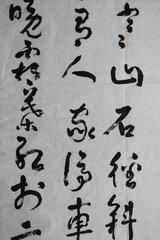 寒山石徑斜
有人家停車
晚霜葉紅於二